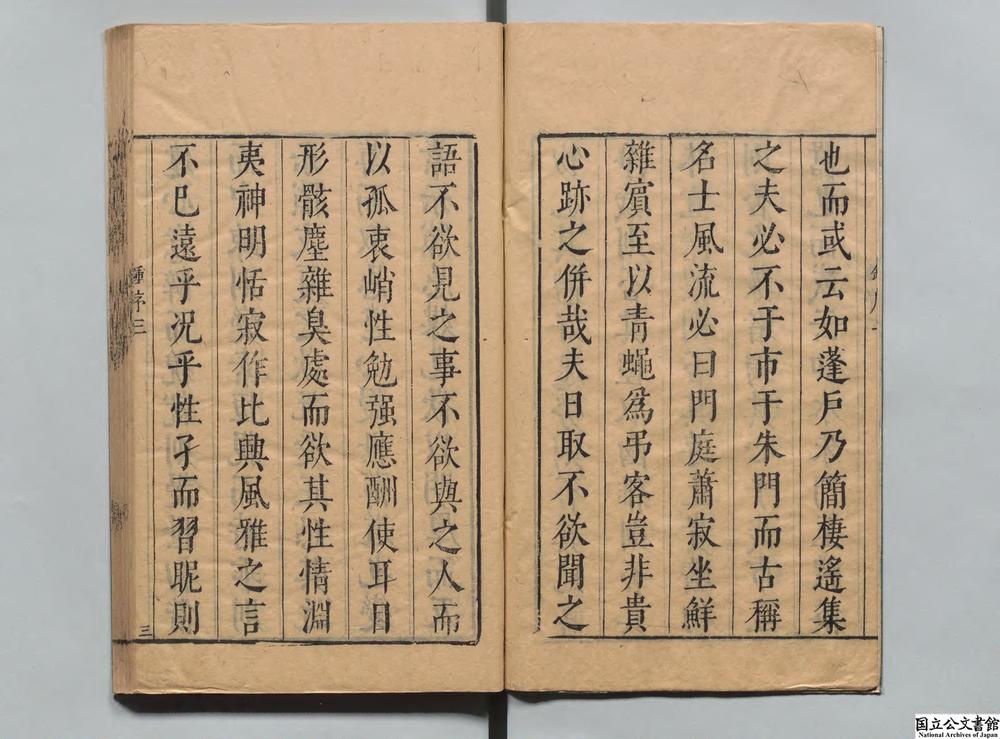 也而或云如蓬戶乃簡棲遙集
之夫必不于市于朱門而古稱
名士風流必曰門庭蕭寂坐鮮
雜賓至以青蠅爲弔客豈非貴
心跡之併哉夫日取不欲聞之
語不欲見之事不欲與之人而
以孤衷峭性勉强應酬使耳目
形骸塵雜臭處而欲其性情淵
夷神明恬寂作比興風雅之言
不巳遠乎况乎性孑而習昵則
鍾序三
三
国立公文書館
National Archives of Japan